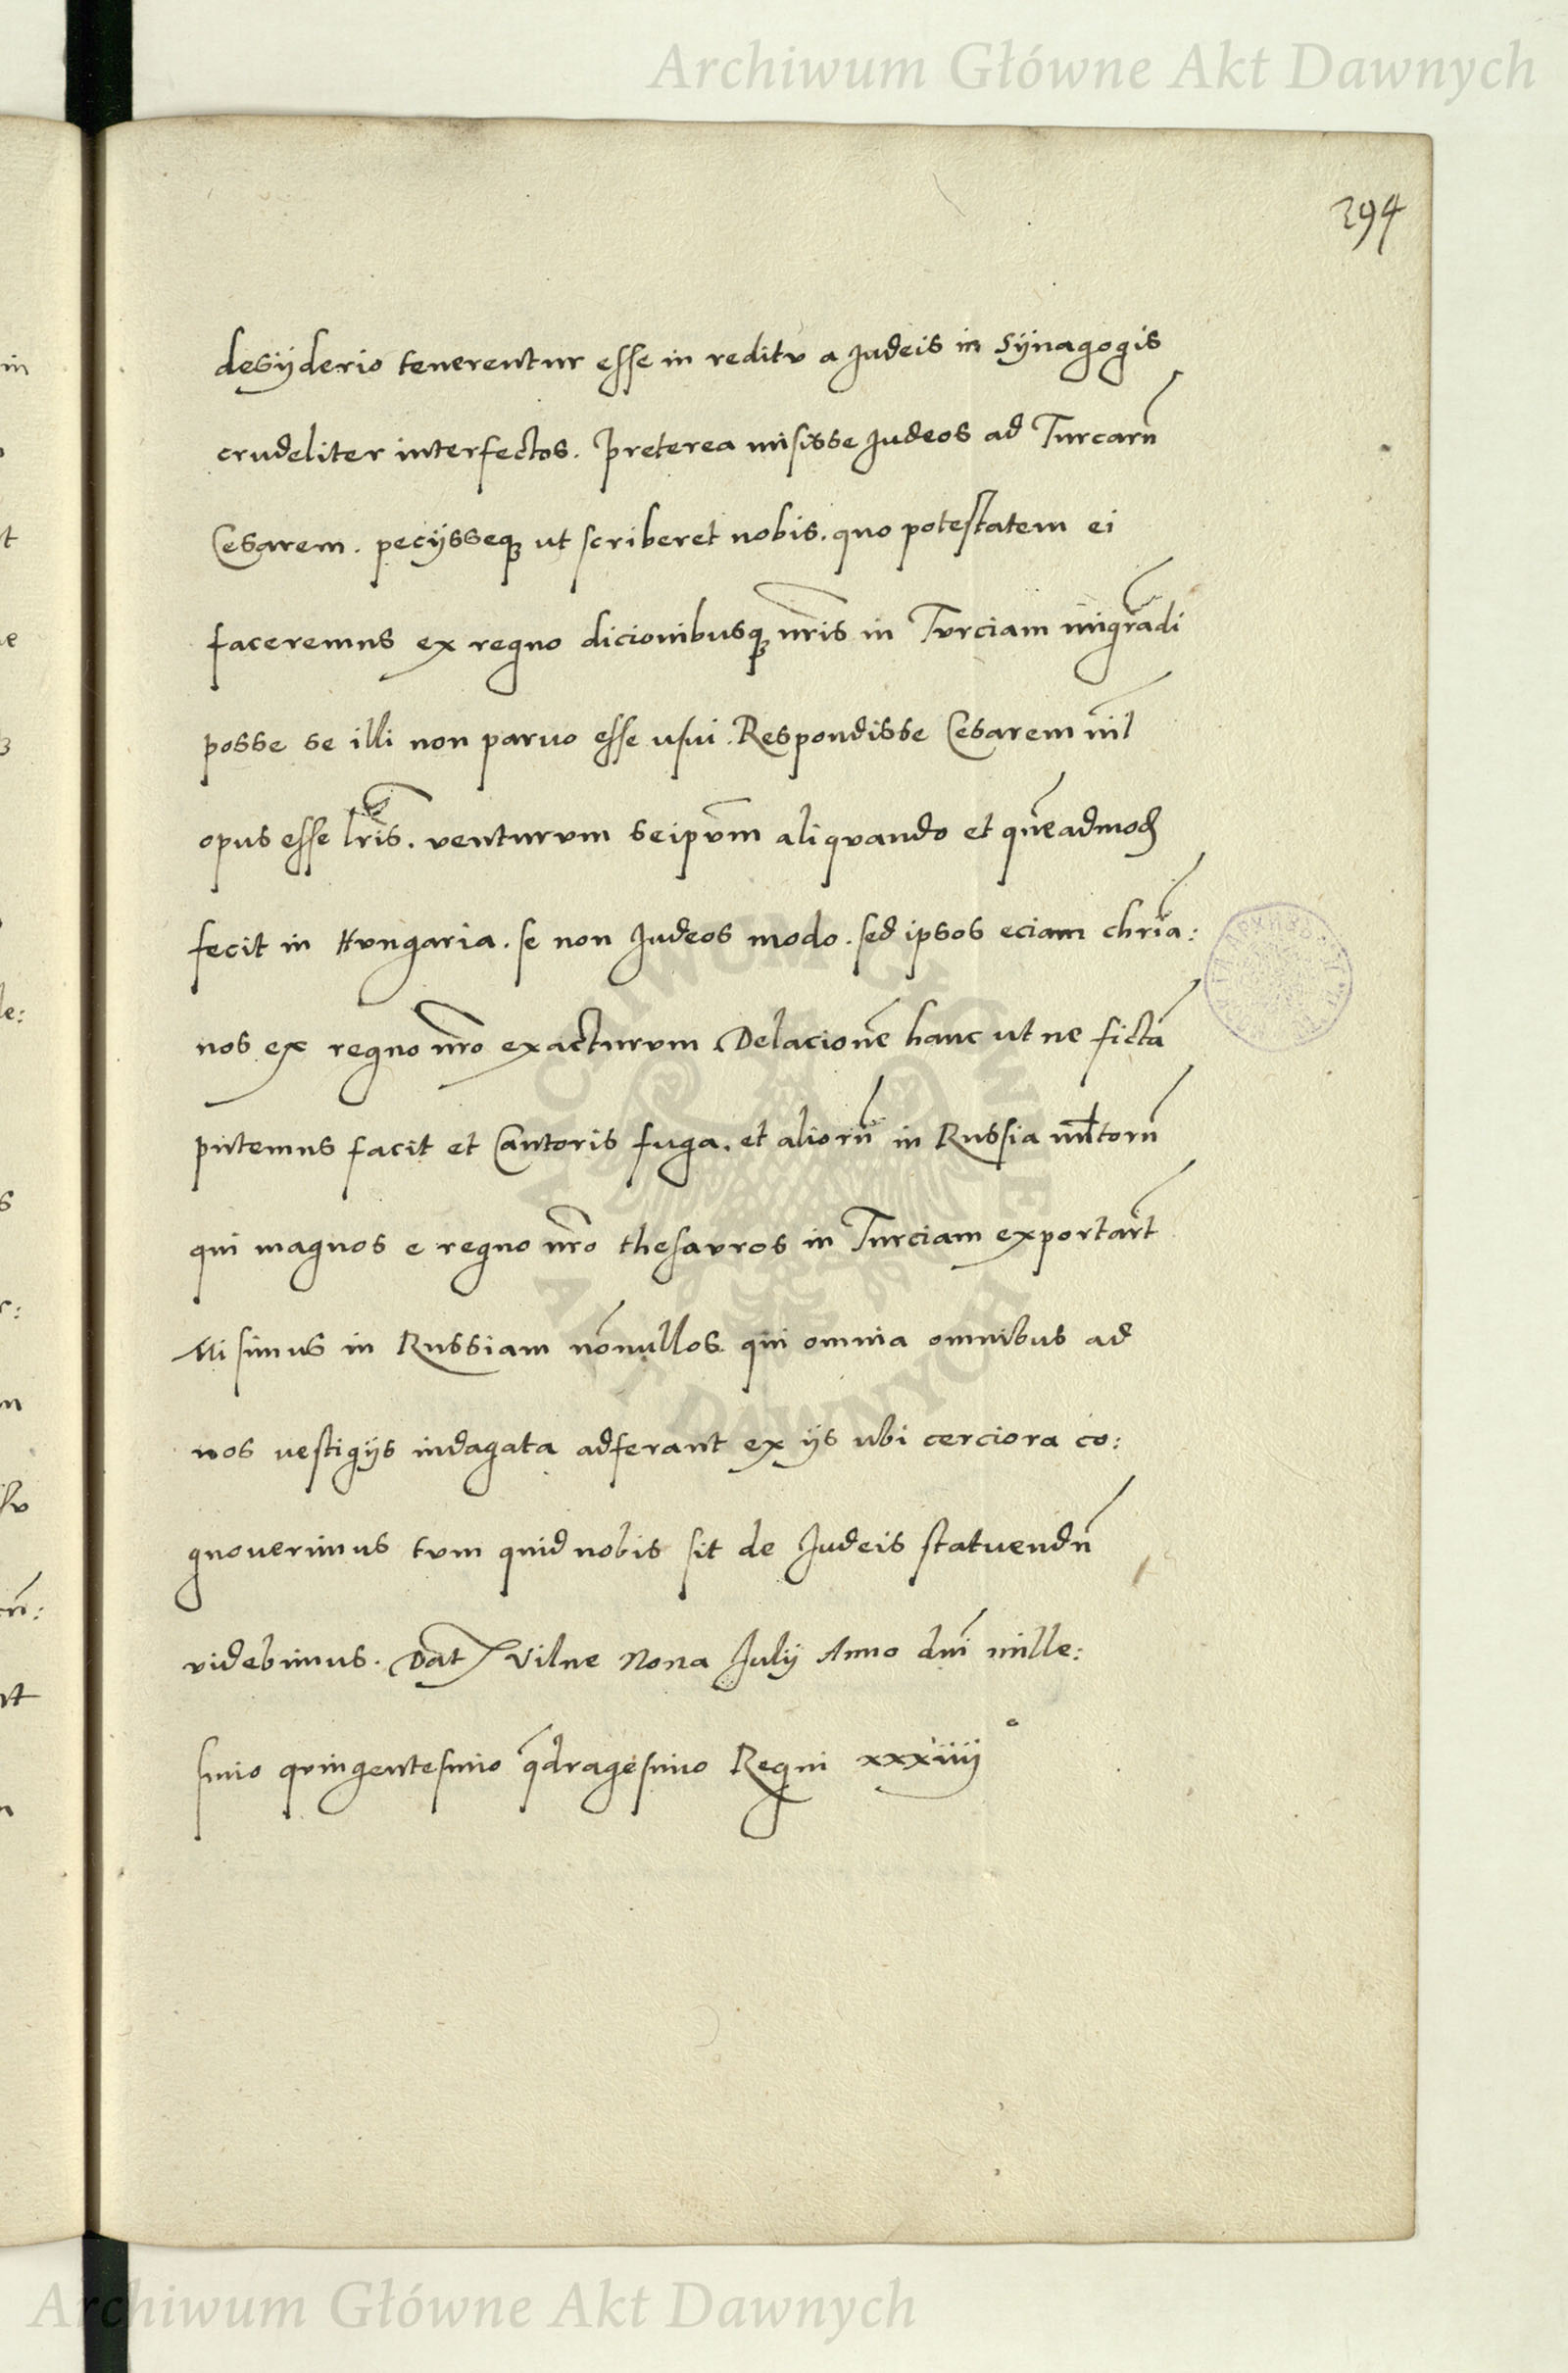 Archiwum Główne Akt Dawnych
294
desyderio tenerentur esse in reditu a Judeis in Synagogis
crudeliter interfectos. Preterea misisse Judeos ad Turcarũ
Cesarem. pecysseq; ut scriberet nobis. quo potestatem ei
faceremus ex regno dicionibusq; nr̃is in Turciam migrãdi
posse se illi non paruo esse usui. Respondisse Cesarem nil̃
opus esse lr̃is. venturum seipũm aliquando et quẽadmod
fecit in Hungaria. se non Judeos modo. sed ipsos eciam chr̃ia:
nos ex regno nr̃o exacturum Delacionẽ hanc ut ne fictã
putemus facit et Cantoris fuga. et aliorũ in Russia ml̃torũ
qui magnos e regno nr̃o thesauros in Turciam exportar̃t
Misimus in Russiam nõnullos qui omnia omnibus ad
nos vestigijs indagata adferant ex ijs ubi cerciora co:
gnouerimus tum quid nobis sit de Judeis statuendũ
videbimus. Dat̃ Vilne Nona July Anno dñi mille:
simo quingentesimo q̃dragesimo Regni xxxiiij°
ARCHIWUM GŁÓWNE
AKT DAWNYCH
Archiwum Główne Akt Dawnych